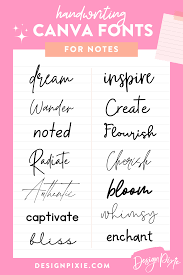 handwriting
CANVA FONTS
FOR NOTES
dream inspire
Wander Create
noted Flourish
Radiate Cherish
Authentic bloom
captivate whimsy
bliss enchant
DESIGNPIXIE.COM
Design Pixie